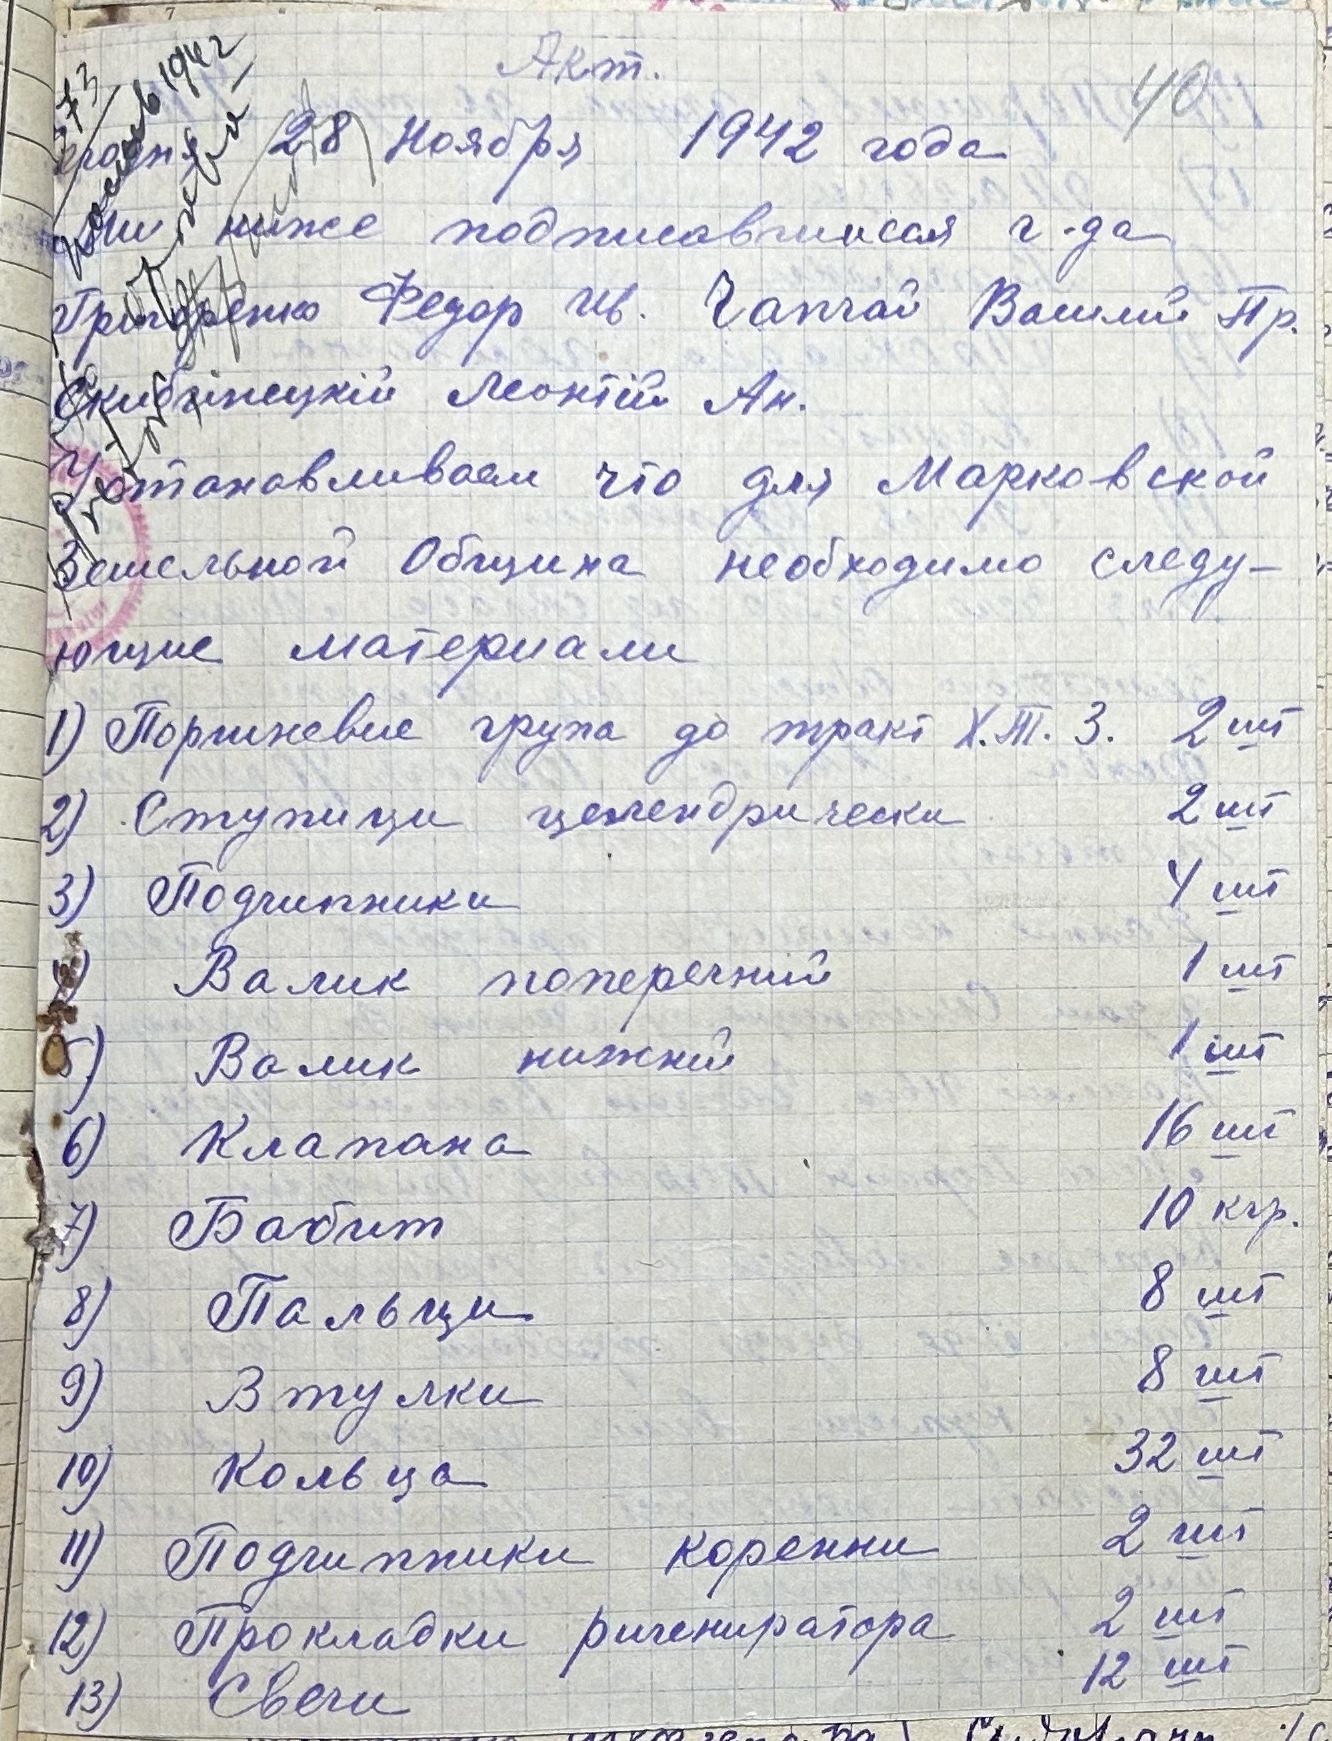 Акт.
40
28 Ноября 1942 года
Ми ниже подписавшиися г-да
Григоренко Федор Ив. Чапчай Василий Пр.
Скибінецкій Леонтій Ан.
Устанавливаем что для Марковской
Земельной Община необходимо следу-
ющие материали
1) Поршневие група до тракт Х.Т.З. 2 шт
2) Ступици целендрически 2 шт
3) Подчипники 4 шт
4) Валик поперечний 1 шт
5) Валик нижний 1 шт
6) Клапана 16 шт
7) Бабит 10 кгр.
8) Пальци 8 шт
9) Втулки 8 шт
10) Кольца 32 шт
11) Подчипники коренни 2 шт
12) Прокладки ригениратора 2 шт
13) Свечи 12 шт